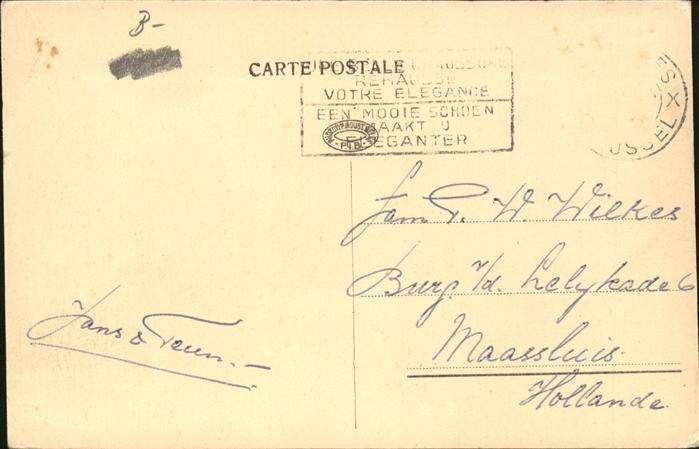 B-
CARTE POSTALE
REHAUSSE
VOTRE ELEGANCE
EEN MOOIE SCHOEN
MAAKT U
ELEGANTER
P.I.B.
Fam P. W. Wilkes
Burg. v/d. Lelykade 6
Maassluis.
Hollande.
Jans & Teun.-